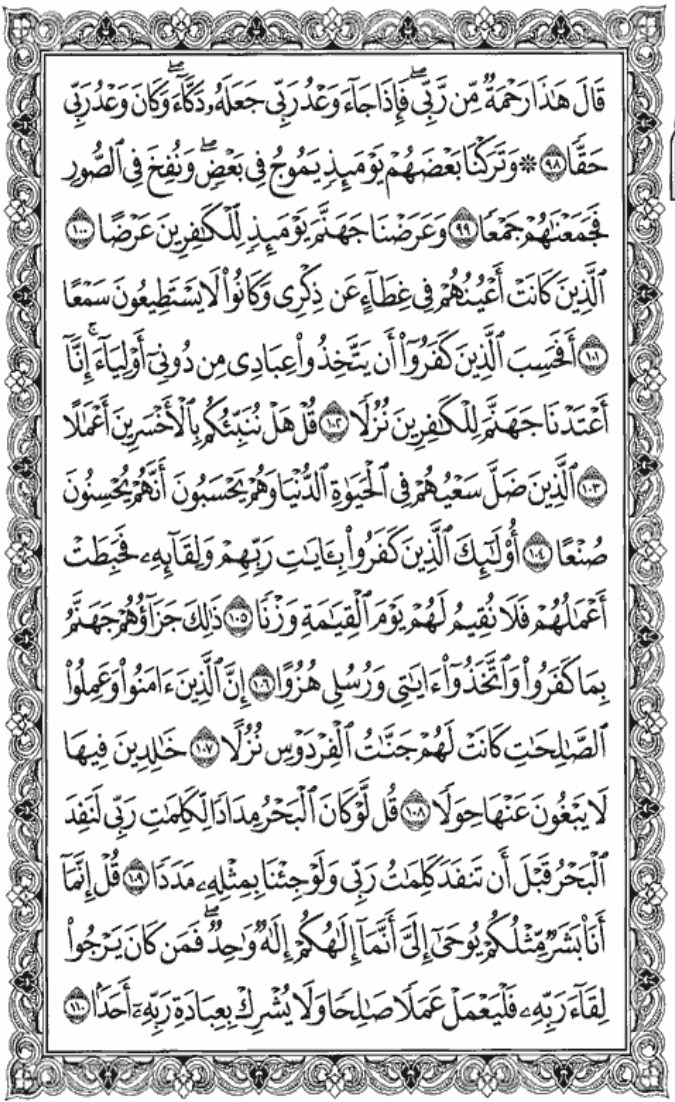 قَالَ هَٰذَا رَحْمَةٌ مِّن رَّبِّي ۖ فَإِذَا جَآءَ وَعْدُ رَبِّي جَعَلَهُۥ دَكَّآءَ ۖ وَكَانَ وَعْدُ رَبِّي
حَقًّا ٩٨ ۞ وَتَرَكْنَا بَعْضَهُمْ يَوْمَئِذٍ يَمُوجُ فِي بَعْضٍ ۖ وَنُفِخَ فِي ٱلصُّورِ
فَجَمَعْنَٰهُمْ جَمْعًا ٩٩ وَعَرَضْنَا جَهَنَّمَ يَوْمَئِذٍ لِّلْكَٰفِرِينَ عَرْضًا ١٠٠
ٱلَّذِينَ كَانَتْ أَعْيُنُهُمْ فِي غِطَآءٍ عَن ذِكْرِي وَكَانُوا۟ لَا يَسْتَطِيعُونَ سَمْعًا
١٠١ أَفَحَسِبَ ٱلَّذِينَ كَفَرُوٓا۟ أَن يَتَّخِذُوا۟ عِبَادِي مِن دُونِيٓ أَوْلِيَآءَ ۚ إِنَّآ
أَعْتَدْنَا جَهَنَّمَ لِلْكَٰفِرِينَ نُزُلًا ١٠٢ قُلْ هَلْ نُنَبِّئُكُم بِٱلْأَخْسَرِينَ أَعْمَٰلًا
١٠٣ ٱلَّذِينَ ضَلَّ سَعْيُهُمْ فِي ٱلْحَيَوٰةِ ٱلدُّنْيَا وَهُمْ يَحْسَبُونَ أَنَّهُمْ يُحْسِنُونَ
صُنْعًا ١٠٤ أُو۟لَٰٓئِكَ ٱلَّذِينَ كَفَرُوا۟ بِـَٔايَٰتِ رَبِّهِمْ وَلِقَآئِهِۦ فَحَبِطَتْ
أَعْمَٰلُهُمْ فَلَا نُقِيمُ لَهُمْ يَوْمَ ٱلْقِيَٰمَةِ وَزْنًا ١٠٥ ذَٰلِكَ جَزَآؤُهُمْ جَهَنَّمُ
بِمَا كَفَرُوا۟ وَٱتَّخَذُوٓا۟ ءَايَٰتِي وَرُسُلِي هُزُوًا ١٠٦ إِنَّ ٱلَّذِينَ ءَامَنُوا۟ وَعَمِلُوا۟
ٱلصَّٰلِحَٰتِ كَانَتْ لَهُمْ جَنَّٰتُ ٱلْفِرْدَوْسِ نُزُلًا ١٠٧ خَٰلِدِينَ فِيهَا
لَا يَبْغُونَ عَنْهَا حِوَلًا ١٠٨ قُل لَّوْ كَانَ ٱلْبَحْرُ مِدَادًا لِّكَلِمَٰتِ رَبِّي لَنَفِدَ
ٱلْبَحْرُ قَبْلَ أَن تَنفَدَ كَلِمَٰتُ رَبِّي وَلَوْ جِئْنَا بِمِثْلِهِۦ مَدَدًا ١٠٩ قُلْ إِنَّمَآ
أَنَا۠ بَشَرٌ مِّثْلُكُمْ يُوحَىٰٓ إِلَيَّ أَنَّمَآ إِلَٰهُكُمْ إِلَٰهٌ وَٰحِدٌ ۖ فَمَن كَانَ يَرْجُوا۟
لِقَآءَ رَبِّهِۦ فَلْيَعْمَلْ عَمَلًا صَٰلِحًا وَلَا يُشْرِكْ بِعِبَادَةِ رَبِّهِۦٓ أَحَدًۢا ١١٠